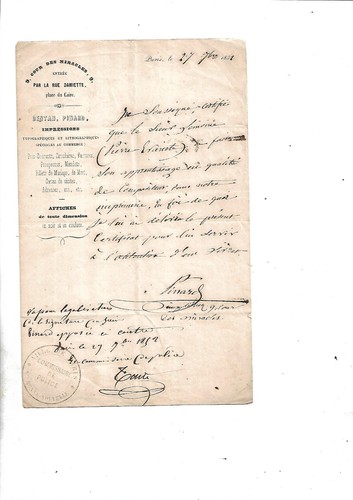 9, COUR DES MIRACLES, 9,
ENTRÉE
PAR LA RUE DAMIETTE,
place du Caire.
BEAULÉ, PINARD,
IMPRESSIONS
TYPOGRAPHIQUES ET LITHOGRAPHIQUES
SPÉCIALES AU COMMERCE
Prix-Courants, Circulaires, Factures,
Prospectus, Mandats,
Billets de Mariage, de Mort,
Cartes de visites,
Adresses, etc., etc.
AFFICHES
de toute dimension
en noir et en couleur.
Paris, le 27 9bre 1852
Je Soussigné, certifie
que le Sieur
(Pierre
son apprentissage en qualité
de Compositeur dans notre
imprimerie, en foi de quoi
je lui ai délivré le présent
Certificat pour lui servir
à l'obtention d'un livret
Pinard
9 Cour
des miracles
Vu pour légalisation
de la signature du Sieur
Pinard apposée ci contre
Paris le 27 9bre 1852
Le Commissaire de police